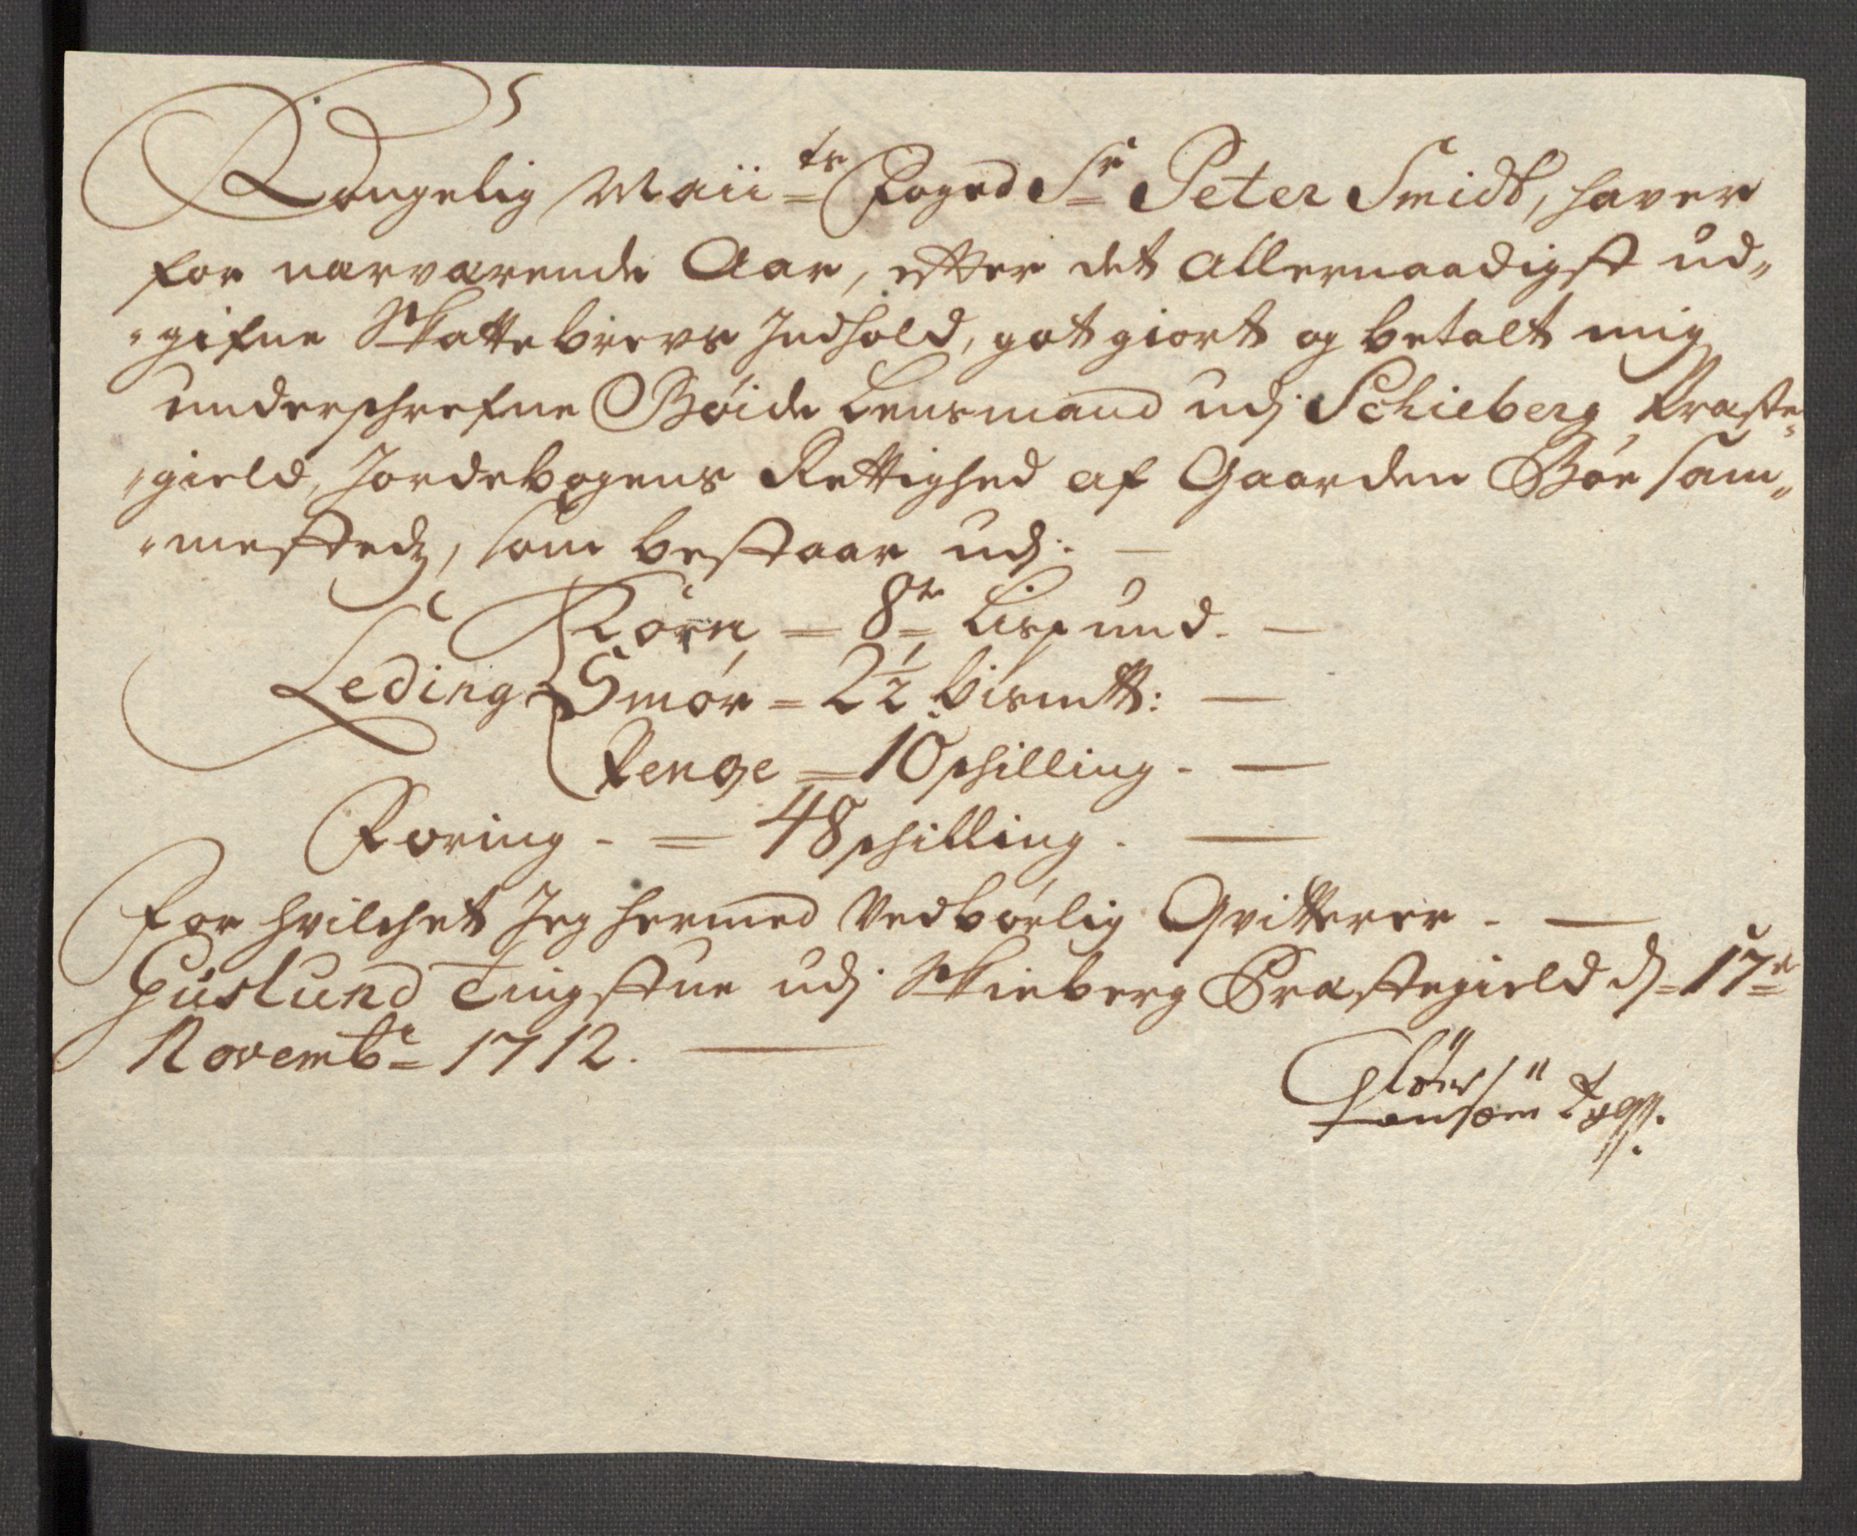 Kongelig Maii=ts Foged Sr Peter Smidt, haver
for nærværende Aar, efter det allernaadigst ud„
„gifne Skattebrevs Indhold, got giort og betalt mig
underschrefne Bøide Lensmand udj Schieberg Præste„
„gield, Jordebogens Rettighed af Gaarden Bøe sam„
„mestedz, som bestaar udj. —
Korn = 8te Lispund. —
Leding Smør = 2½ bismtt: —
Penge = 10 schilling. —
Foring. = 48 schilling. —
For hvilchet Jeg hermed Vedbørlig Qvitterer. —
Huslund Tingstue udj Skieberg Præstegield d: 17de
Novembr= 1712. —